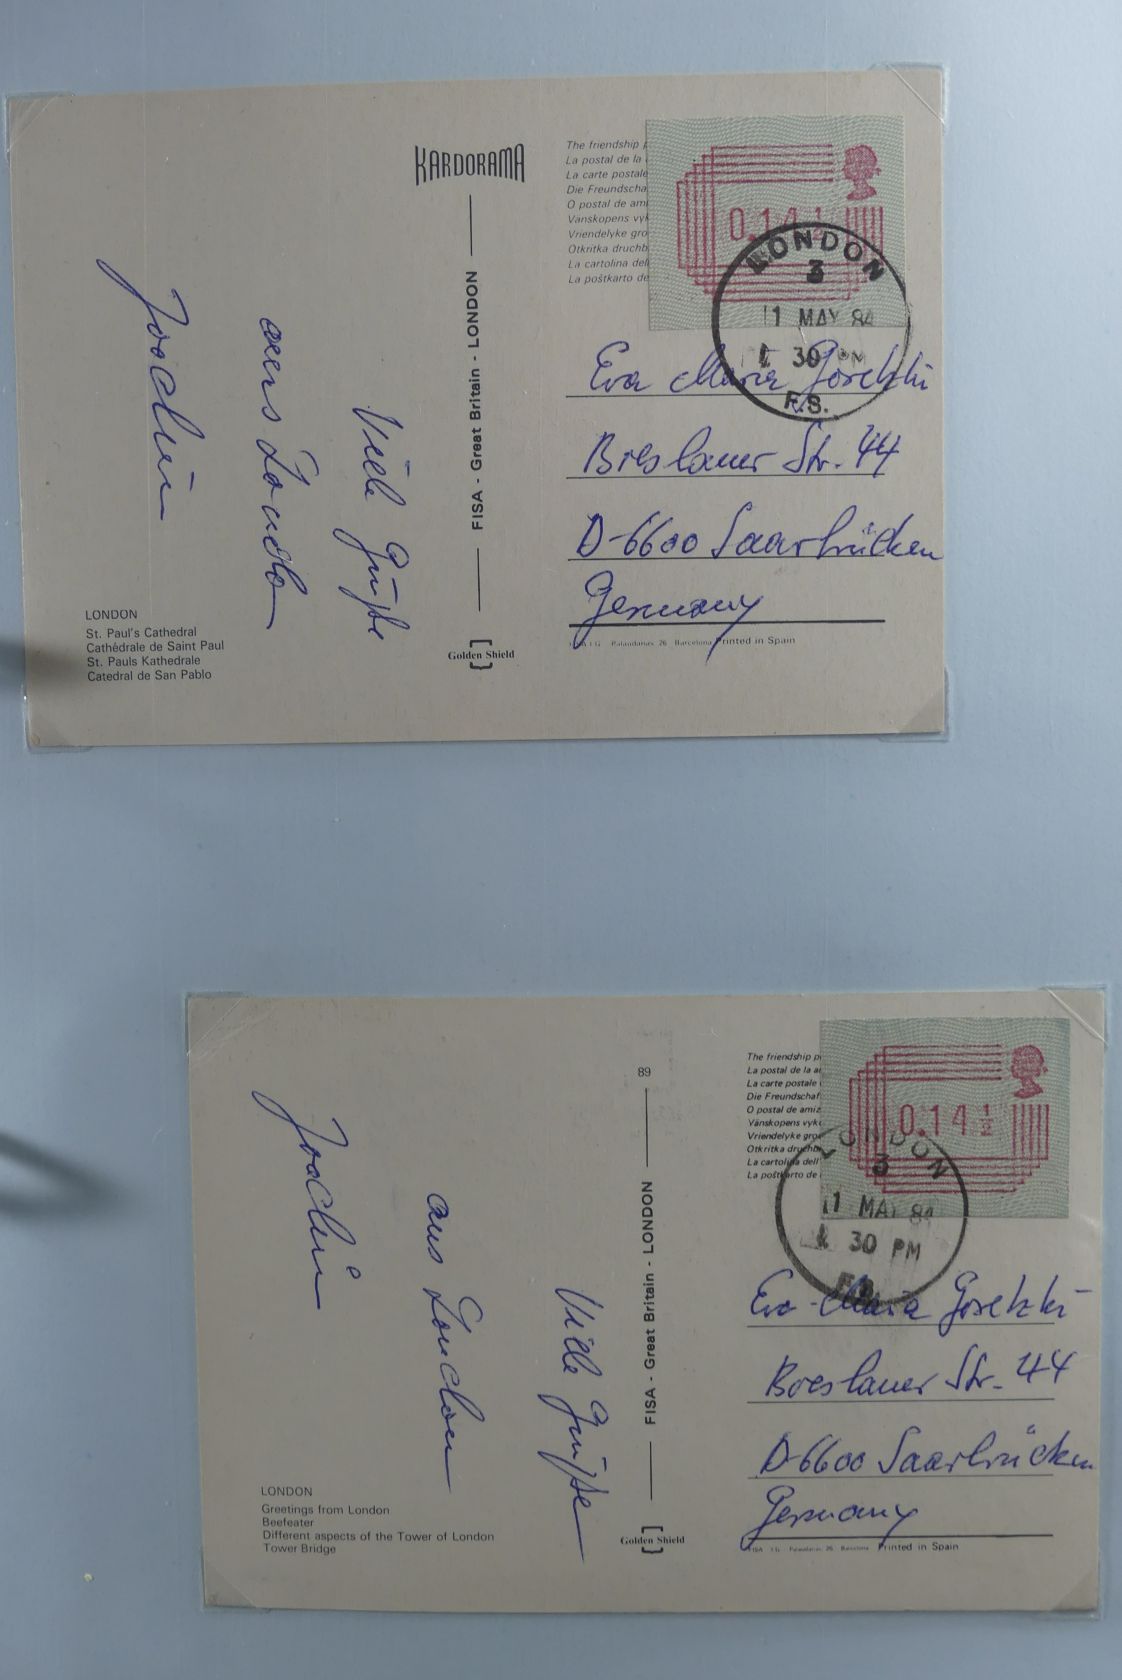 KARDORAMA
The friendship
La postal de la
La carte postale
Die Freundscha
O postal de ami
Vänskopens vyk
Vriendelyke gro
Otkritka druchb
La cartolina dell
La poŝtkarto de
0.14½
LONDON
3
1 MAY 84
30 PM
F.S.
Viele Grüße
aus London
Joachim
FISA - Great Britain - LONDON
Eva Maria
Breslauer Str. 44
D-6600 Saarbrücken
Germany
LONDON
St. Paul's Cathedral
Cathédrale de Saint Paul
St. Pauls Kathedrale
Catedral de San Pablo
Golden Shield
Palaudarias 26 Barcelona Printed in Spain
89
The friendship p
La postal de la a
La carte postale
Die Freundschaf
O postal de amiz
Vänskopens vyko
Vriendelyke gro
Otkritka druchb
La cartolina dell'
La poŝtkarto de
0.14½
LONDON
3
1 MAY 84
30 PM
F.S.
Viele Grüße
aus London
Joachim
FISA - Great Britain - LONDON
Eva-Maria
Breslauer Str. 44
D-6600 Saarbrücken
Germany
LONDON
Greetings from London
Beefeater
Different aspects of the Tower of London
Tower Bridge
Golden Shield
FISA Palaudarias 26 Barcelona Printed in Spain